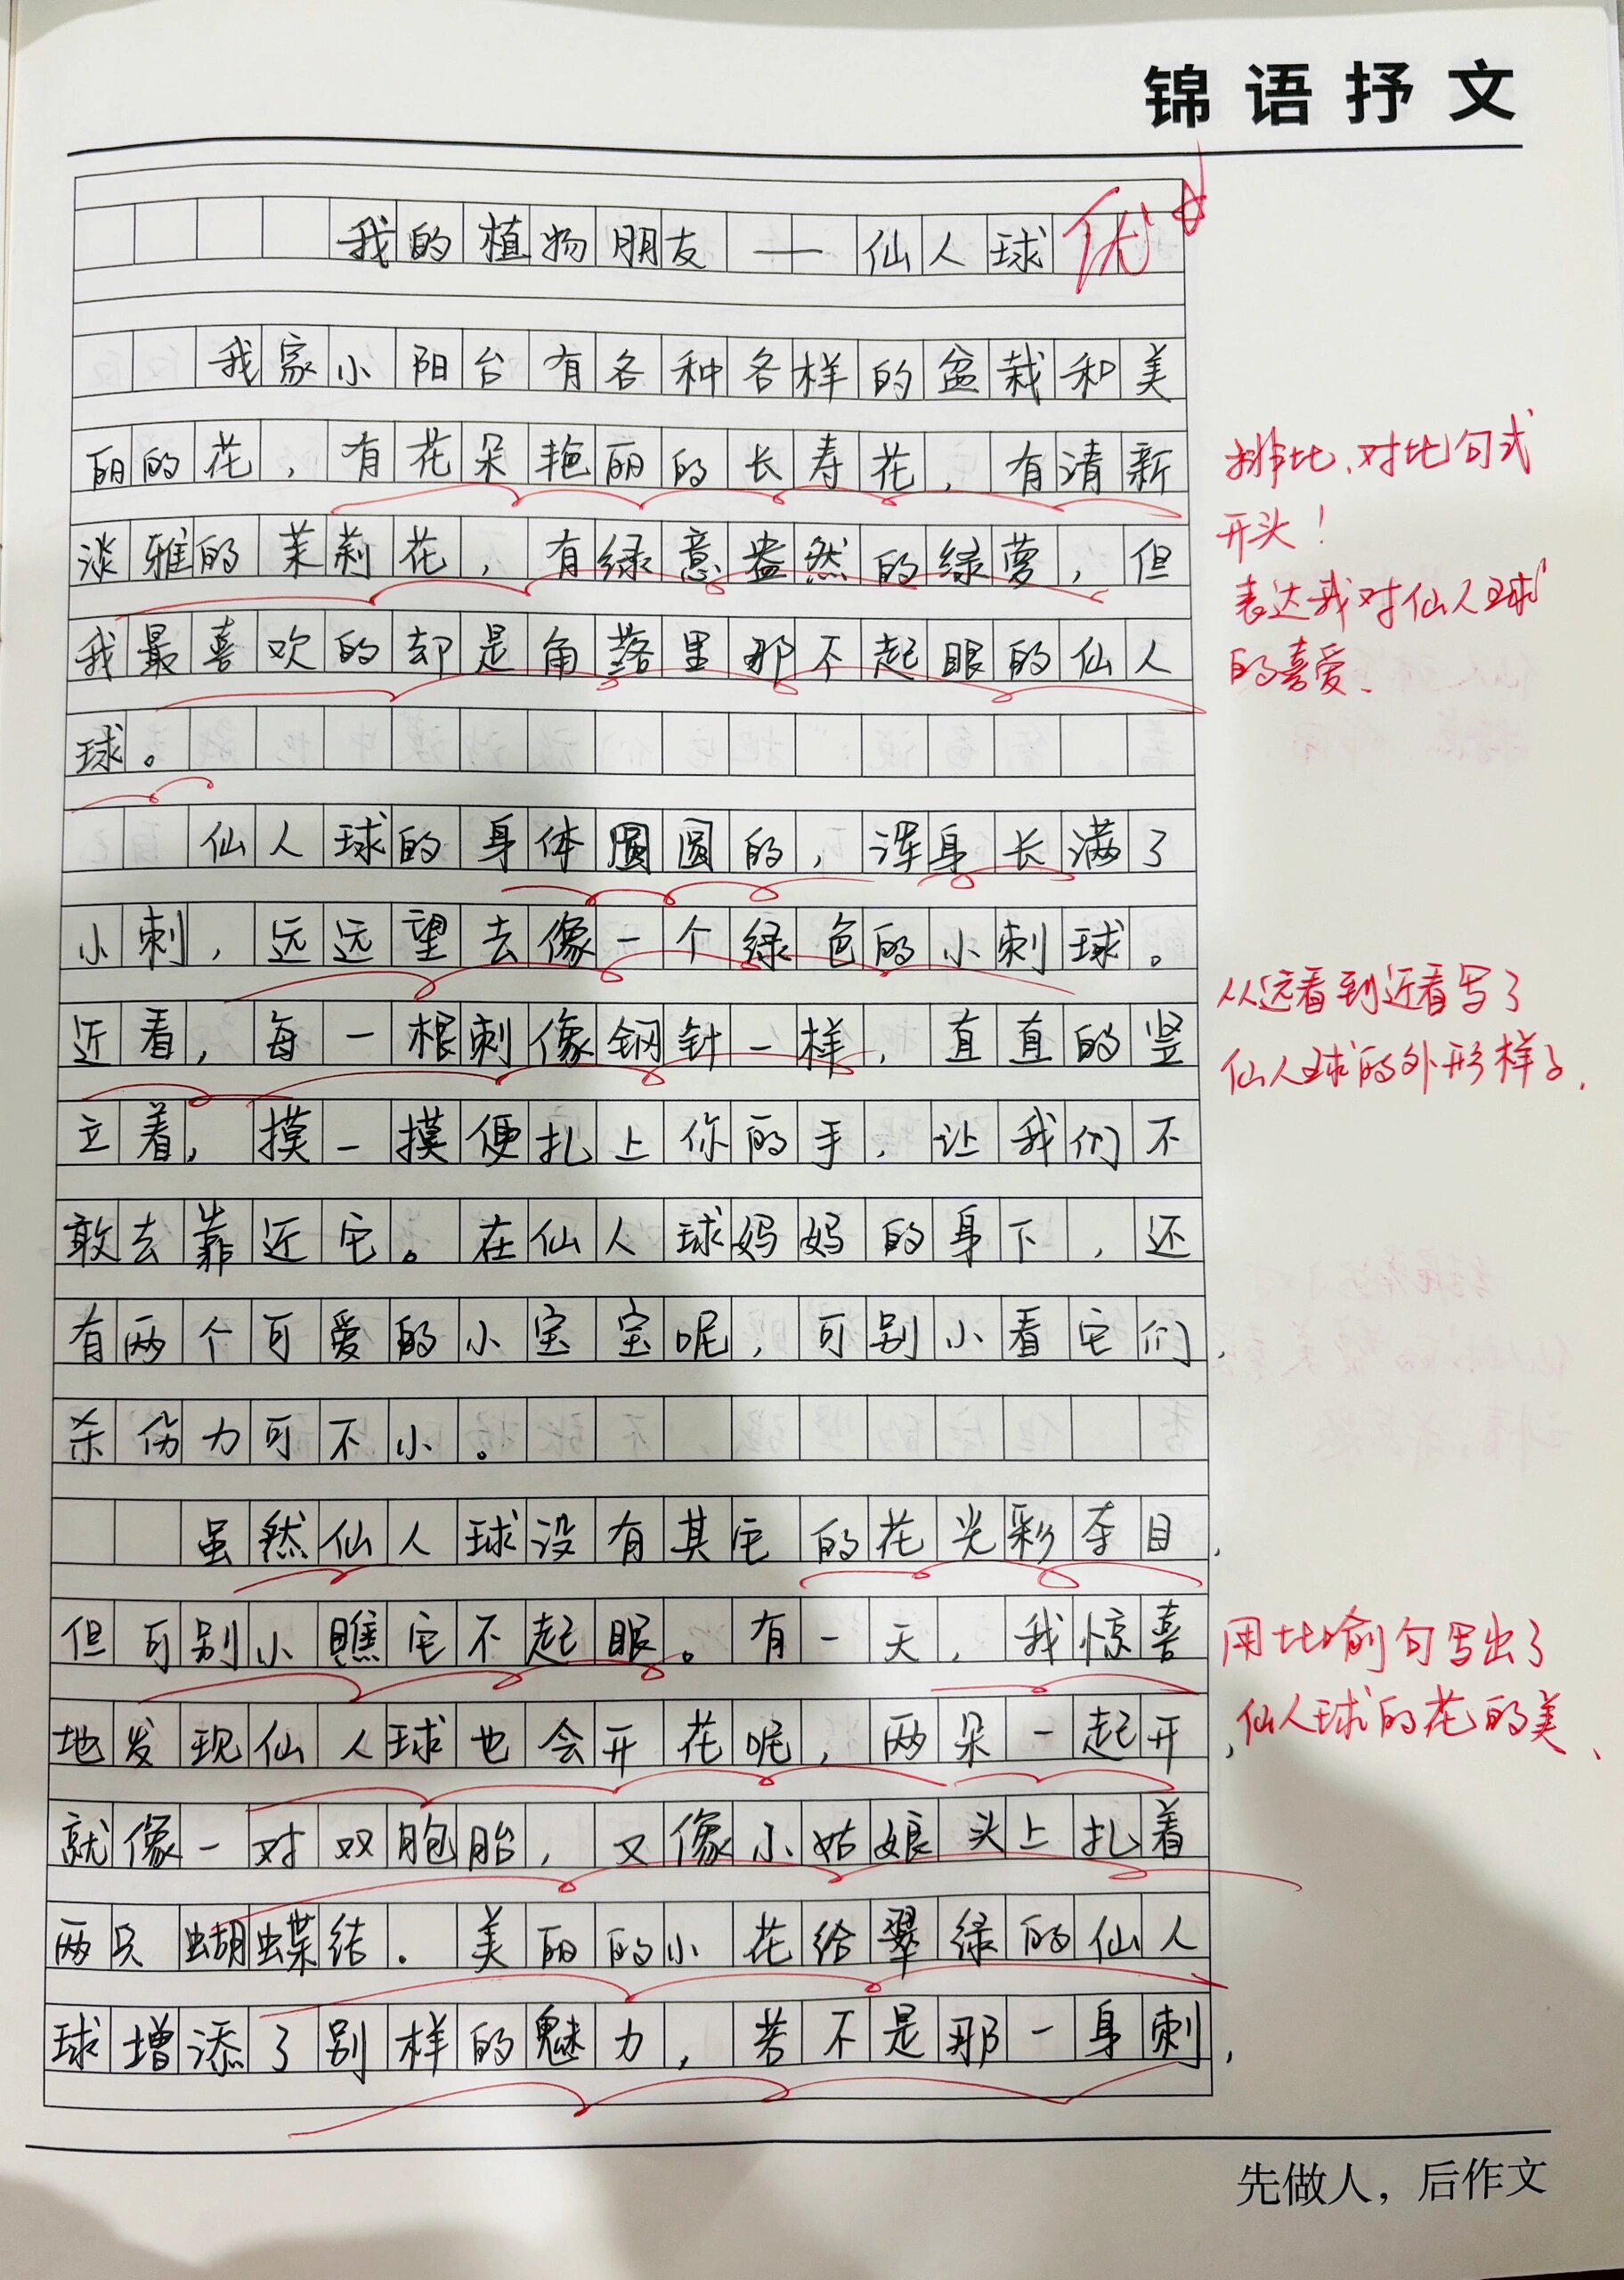 锦语抒文
我的植物朋友——仙人球 优
我家小阳台有各种各样的盆栽和美
丽的花，有花朵艳丽的长寿花，有清新
淡雅的茉莉花，有绿意盎然的绿萝，但
我最喜欢的却是角落里那不起眼的仙人
球。
排比、对比句式
开头！
表达我对仙人球
的喜爱、
仙人球的身体圆圆的，浑身长满了
小刺，远远望去像一个绿色的小刺球。
近看，每一根刺像钢针一样，直直的竖
立着，摸一摸便扎上你的手，让我们不
敢去靠近它。在仙人球妈妈的身下，还
有两个可爱的小宝宝呢，可别小看它们，
杀伤力可不小。
从远看到近看写了
仙人球的外形样子.
虽然仙人球没有其它的花光彩夺目，
但可别小瞧它不起眼。有一天，我惊喜
地发现仙人球也会开花呢，两朵一起开，
就像一对双胞胎，又像小姑娘头上扎着
两只蝴蝶结．美丽的小花给翠绿的仙人
球增添了别样的魅力，若不是那一身刺，
用比喻句写出了
仙人球的花的美、
先做人，后作文